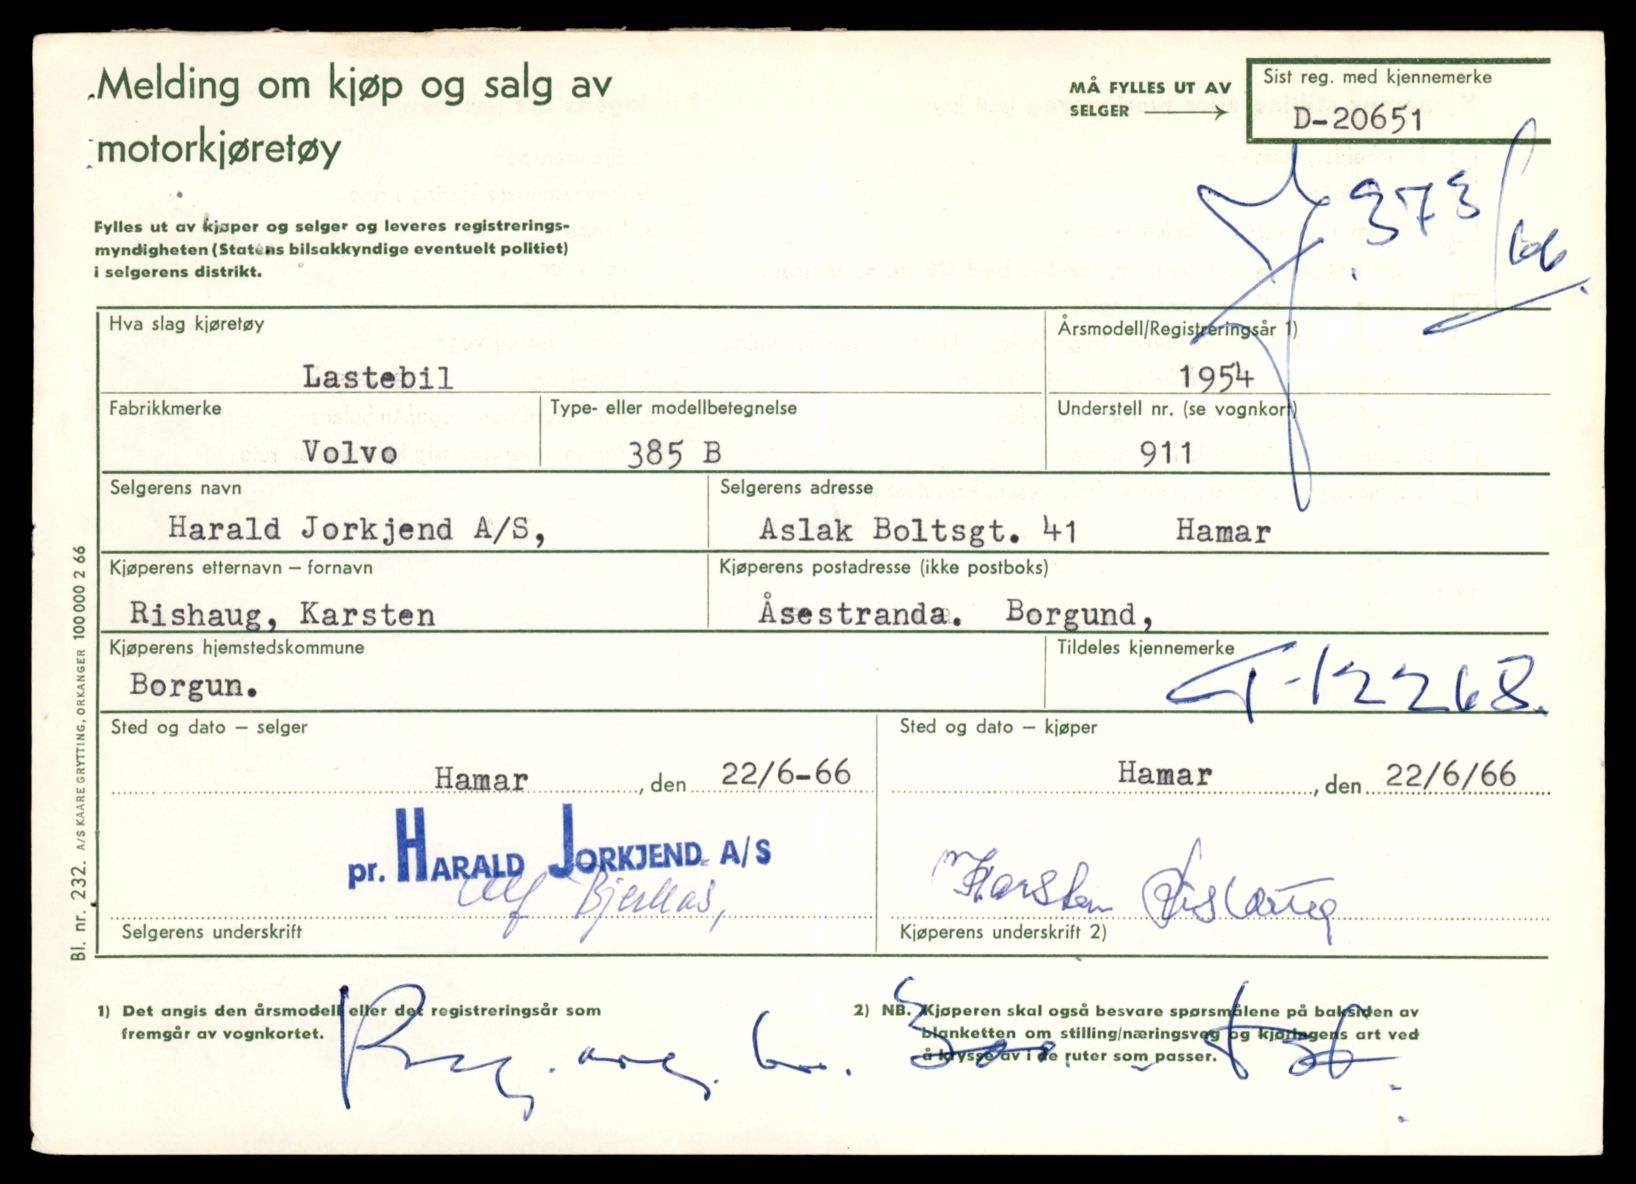 Melding om kjøp og salg av
motorkjøretøy
MÅ FYLLES UT AV
SELGER
Sist reg. med kjennemerke
D-20651
373/66
Fylles ut av kjøper og selger og leveres registrerings-
myndigheten (Statens bilsakkyndige eventuelt politiet)
i selgerens distrikt.
Hva slag kjøretøy
Årsmodell/Registreringsår 1)
Lastebil
1954
Fabrikkmerke
Type- eller modellbetegnelse
Understell nr. (se vognkort)
Volvo
385 B
911
Selgerens navn
Selgerens adresse
Harald Jorkjend A/S,
Aslak Boltsgt. 41 Hamar
Kjøperens etternavn – fornavn
Kjøperens postadresse (ikke postboks)
Rishaug, Karsten
Åsestranda. Borgund,
Kjøperens hjemstedskommune
Tildeles kjennemerke
Borgun.
T-12268.
Sted og dato – selger
Sted og dato – kjøper
Hamar, den 22/6-66
Hamar, den 22/6/66
pr. HARALD JORKJEND A/S
Karsten Rishaug
Selgerens underskrift
Kjøperens underskrift 2)
1) Det angis den årsmodell eller det registreringsår som
fremgår av vognkortet.
2) NB. Kjøperen skal også besvare spørsmålene på baksiden av
blanketten om stilling/næringsveg og kjøringens art ved
å krysse av i de ruter som passer.
Bl. nr. 232. A/S KAARE GRYTTING, ORKANGER 100 000 2 66